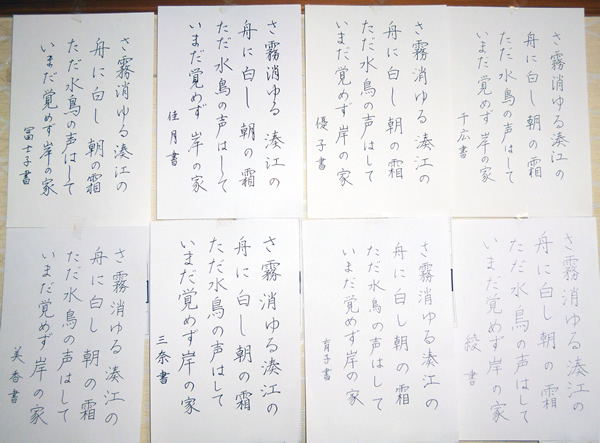 さ霧消ゆる湊江の
舟に白し朝の霜
ただ水鳥の声はして
いまだ覚めず岸の家
冨士子書
さ霧消ゆる湊江の
舟に白し朝の霜
ただ水鳥の声はして
いまだ覚めず岸の家
佳月書
さ霧消ゆる湊江の
舟に白し朝の霜
ただ水鳥の声はして
いまだ覚めず岸の家
優子書
さ霧消ゆる湊江の
舟に白し朝の霜
ただ水鳥の声はして
いまだ覚めず岸の家
千広書
さ霧消ゆる湊江の
舟に白し朝の霜
ただ水鳥の声はして
いまだ覚めず岸の家
美香書
さ霧消ゆる湊江の
舟に白し朝の霜
ただ水鳥の声はして
いまだ覚めず岸の家
三奈書
さ霧消ゆる湊江の
舟に白し朝の霜
ただ水鳥の声はして
いまだ覚めず岸の家
育子書
さ霧消ゆる湊江の
舟に白し朝の霜
ただ水鳥の声はして
いまだ覚めず岸の家
綾書